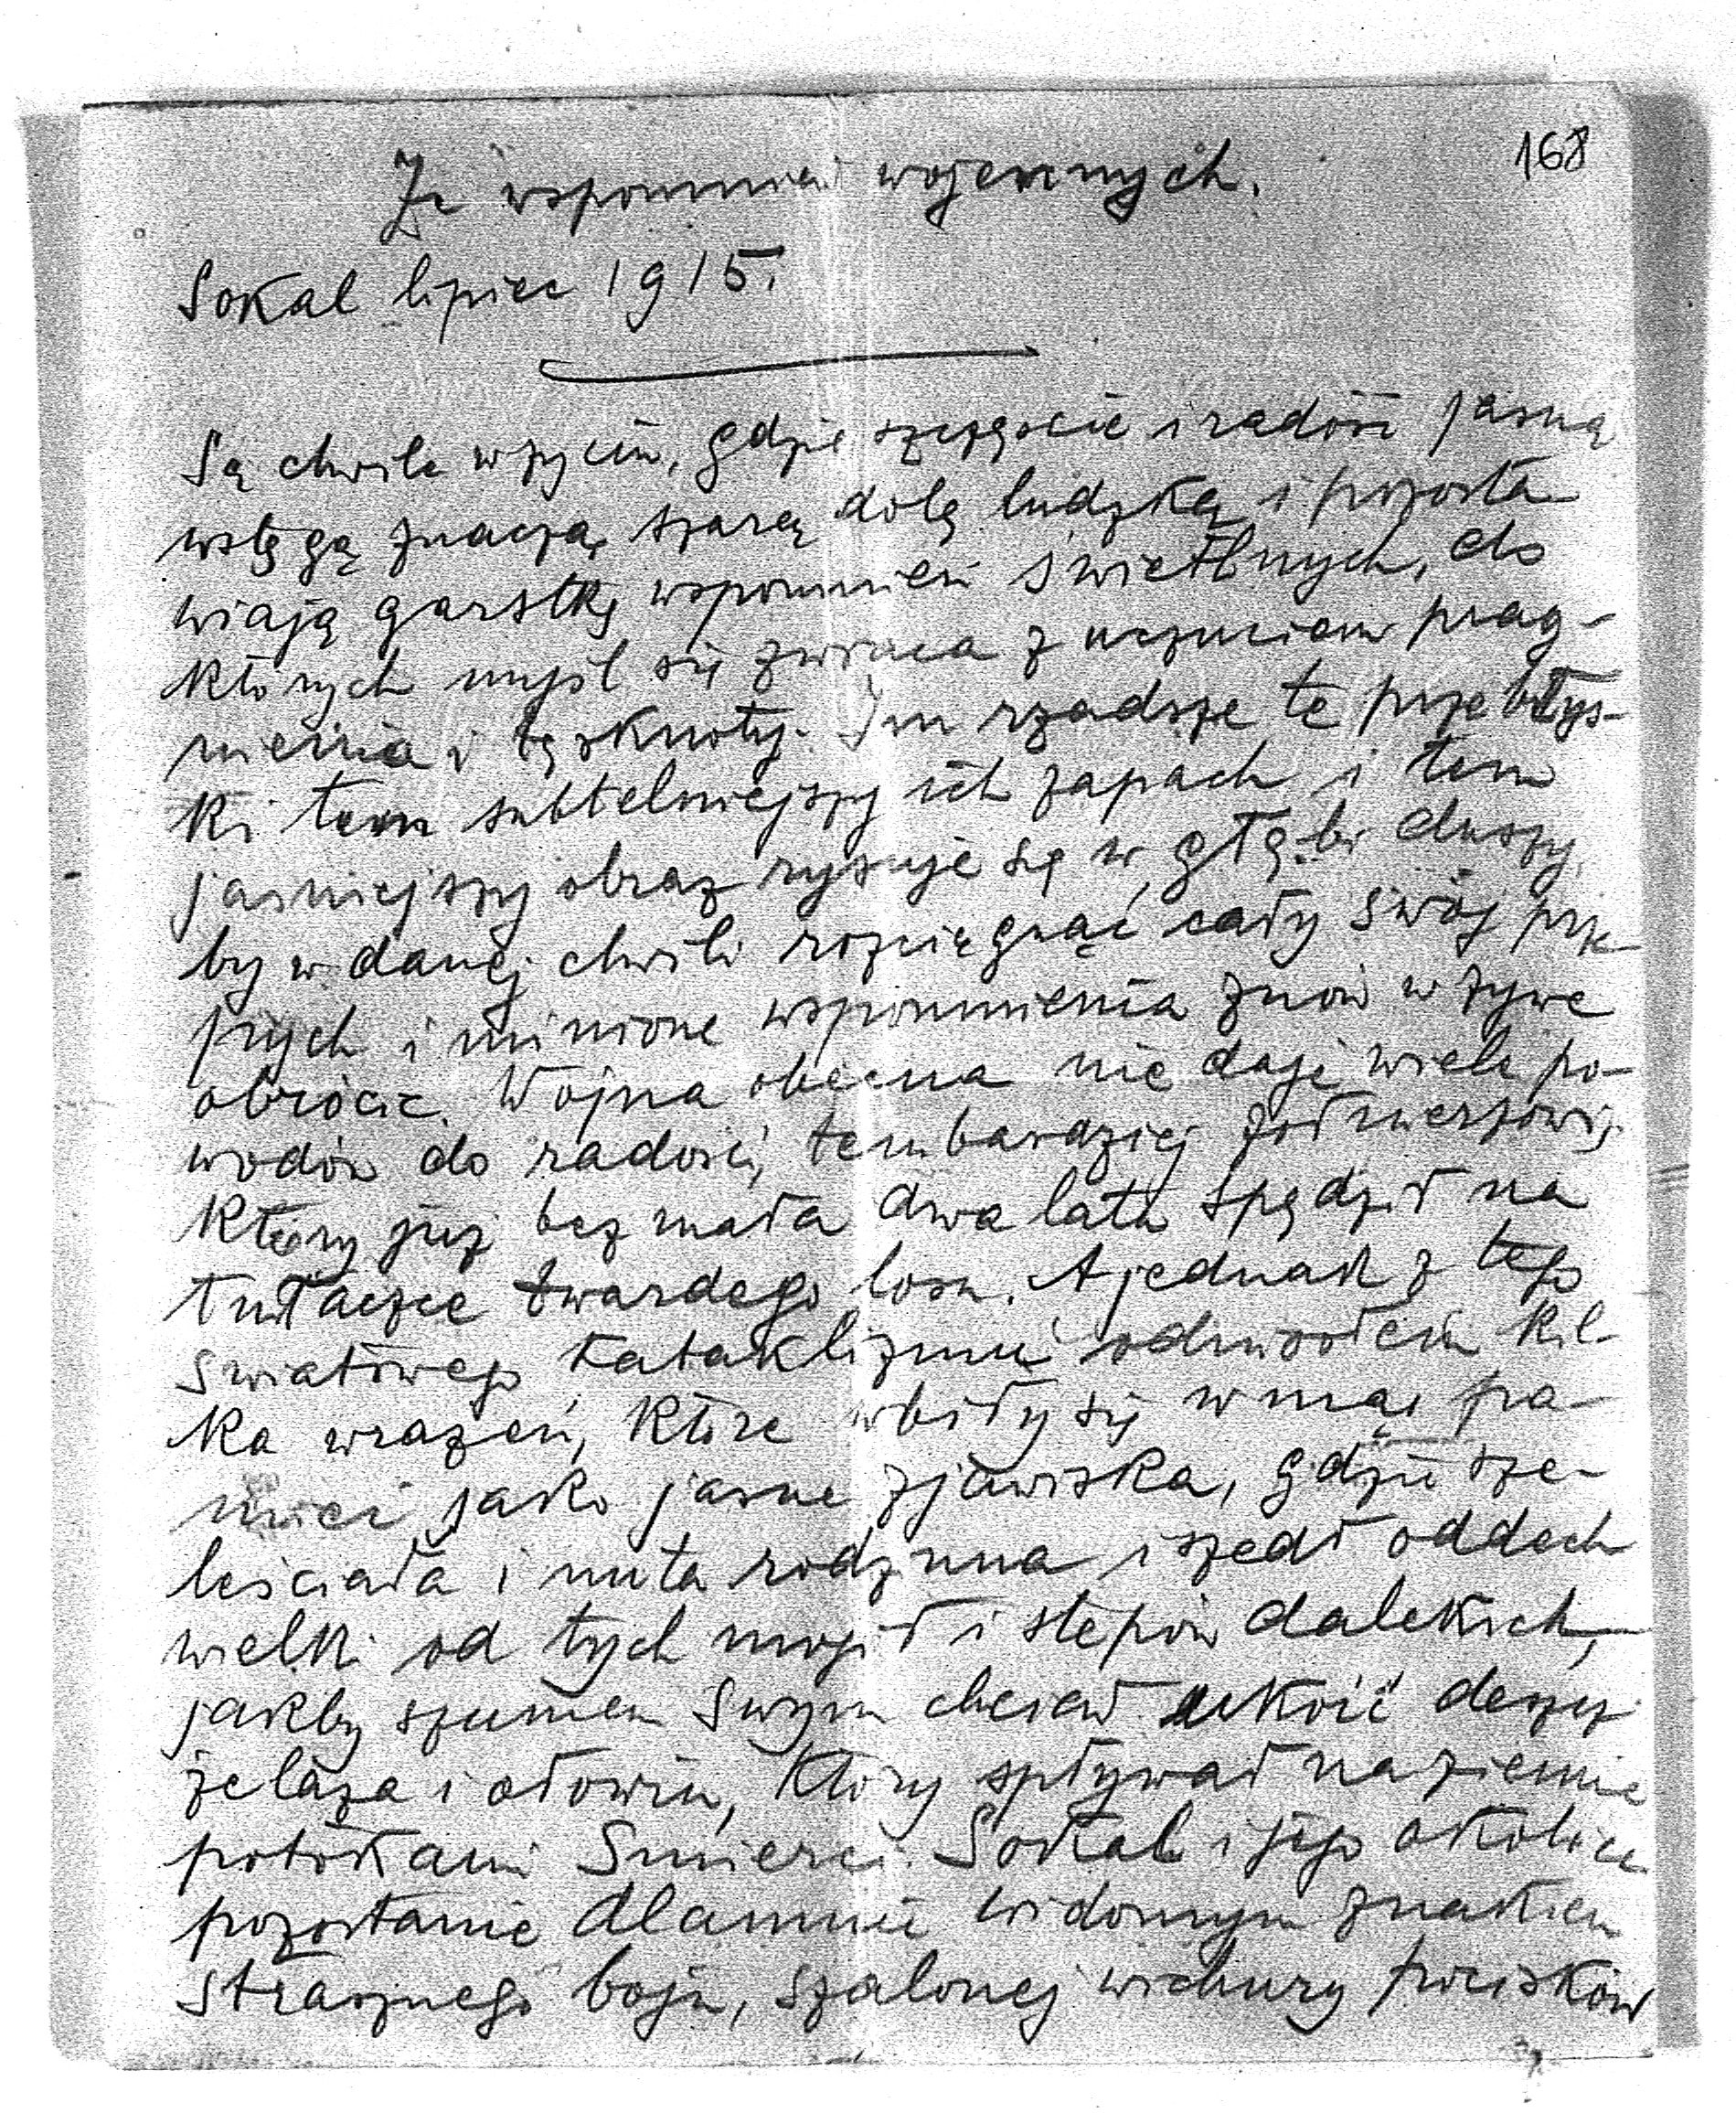 168
Ze wspomnień wojennych.
Sokal lipiec 1915.
Są chwile w życiu, gdzie szczęście i radość jasną
wstęgą znaczą szarą dolę ludzką i pozosta-
wiają garstkę wspomnień świetlnych, do
których myśl się zwraca z uczuciem prag-
nienia i tęsknoty. Im rzadsze te przebłys-
ki tem subtelniejszy ich zapach i tem
jaśniejszy obraz rysuje się w głębi duszy,
by w danej chwili rozciągnąć cały swój prze-
pych i minione wspomnienia znów w żywe
obrócić. Wojna obecna nie daje wiele po-
wodów do radości, tembardziej żołnierzowi,
który już bez mała dwa lata spędził na
tułaczce twardego losu. A jednak z tego
światowego kataklizmu odniosłem kil-
ka wrażeń, które wbiły się w mą pa-
mięć jako jasne zjawiska, gdzie sze-
leściała i nuta rodzinna i szedł oddech
wielki od tych mogił i stepów dalekich,
jakby szumem swym chciał ukoić deszcz
żelaza i ołowiu, który spływał na ziemię
potokami śmierci. Sokal i jego okolice
pozostanie dla mnie widomym znakiem
strasznego boju, szalonej wichury pocisków